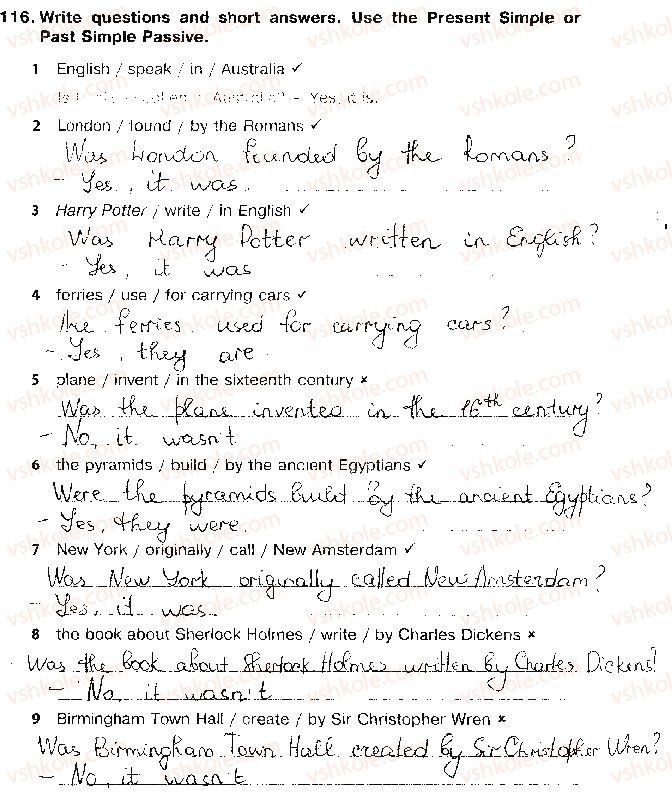 116. Write questions and short answers. Use the Present Simple or
Past Simple Passive.
1 English / speak / in / Australia ✓
Is Australia? – Yes, it is.
2 London / found / by the Romans ✓
Was London founded by the Romans?
- Yes, it was.
3 Harry Potter / write / in English ✓
Was Harry Potter written in English?
- Yes, it was
4 ferries / use / for carrying cars ✓
the ferries used for carrying cars?
- Yes, they are.
5 plane / invent / in the sixteenth century ×
Was the plane invented in the 16th century?
- No, it wasn't
6 the pyramids / build / by the ancient Egyptians ✓
Were the pyramids build by the ancient Egyptians?
- Yes, they were.
7 New York / originally / call / New Amsterdam ✓
Was New York originally called New Amsterdam?
- Yes, it was.
8 the book about Sherlock Holmes / write / by Charles Dickens ×
Was the book about Sherlock Holmes written by Charles Dickens?
- No, it wasn't
9 Birmingham Town Hall / create / by Sir Christopher Wren ×
Was Birmingham Town Hall created by Sir Christopher Wren?
- No, it wasn't
vshkole.com